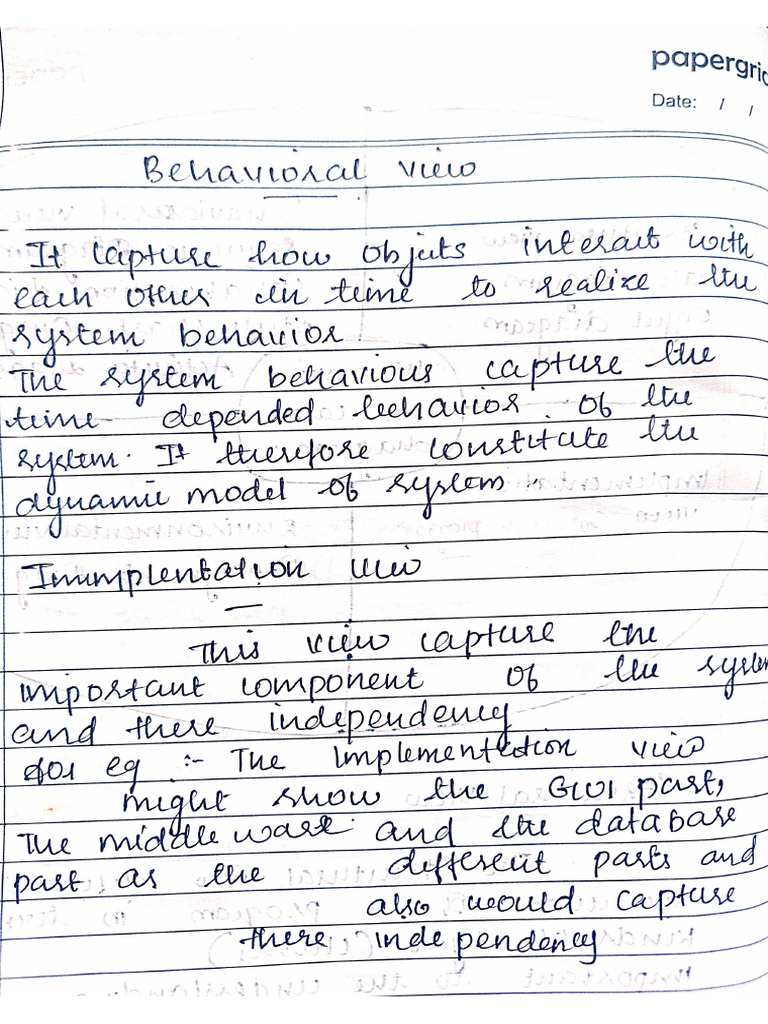 papergrid
Date: / /
Behavioral view
It capture how objects interact with
each other in time to realize the
system behavior
The system behavious capture the
time depended behavior of the
system. It therefore constitute the
dynamic model of system.
Imumplentation view
This view capture the
important component of the system
and there independency
for eg :- The implementation view
might show the GUI part,
The middle ware and the database
part as the different parts and
also would capture
there independency